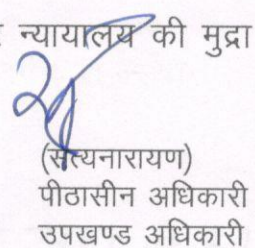 न्यायालय की मुद्रा
(सत्यनारायण)
पीठासीन अधिकारी
उपखण्ड अधिकारी